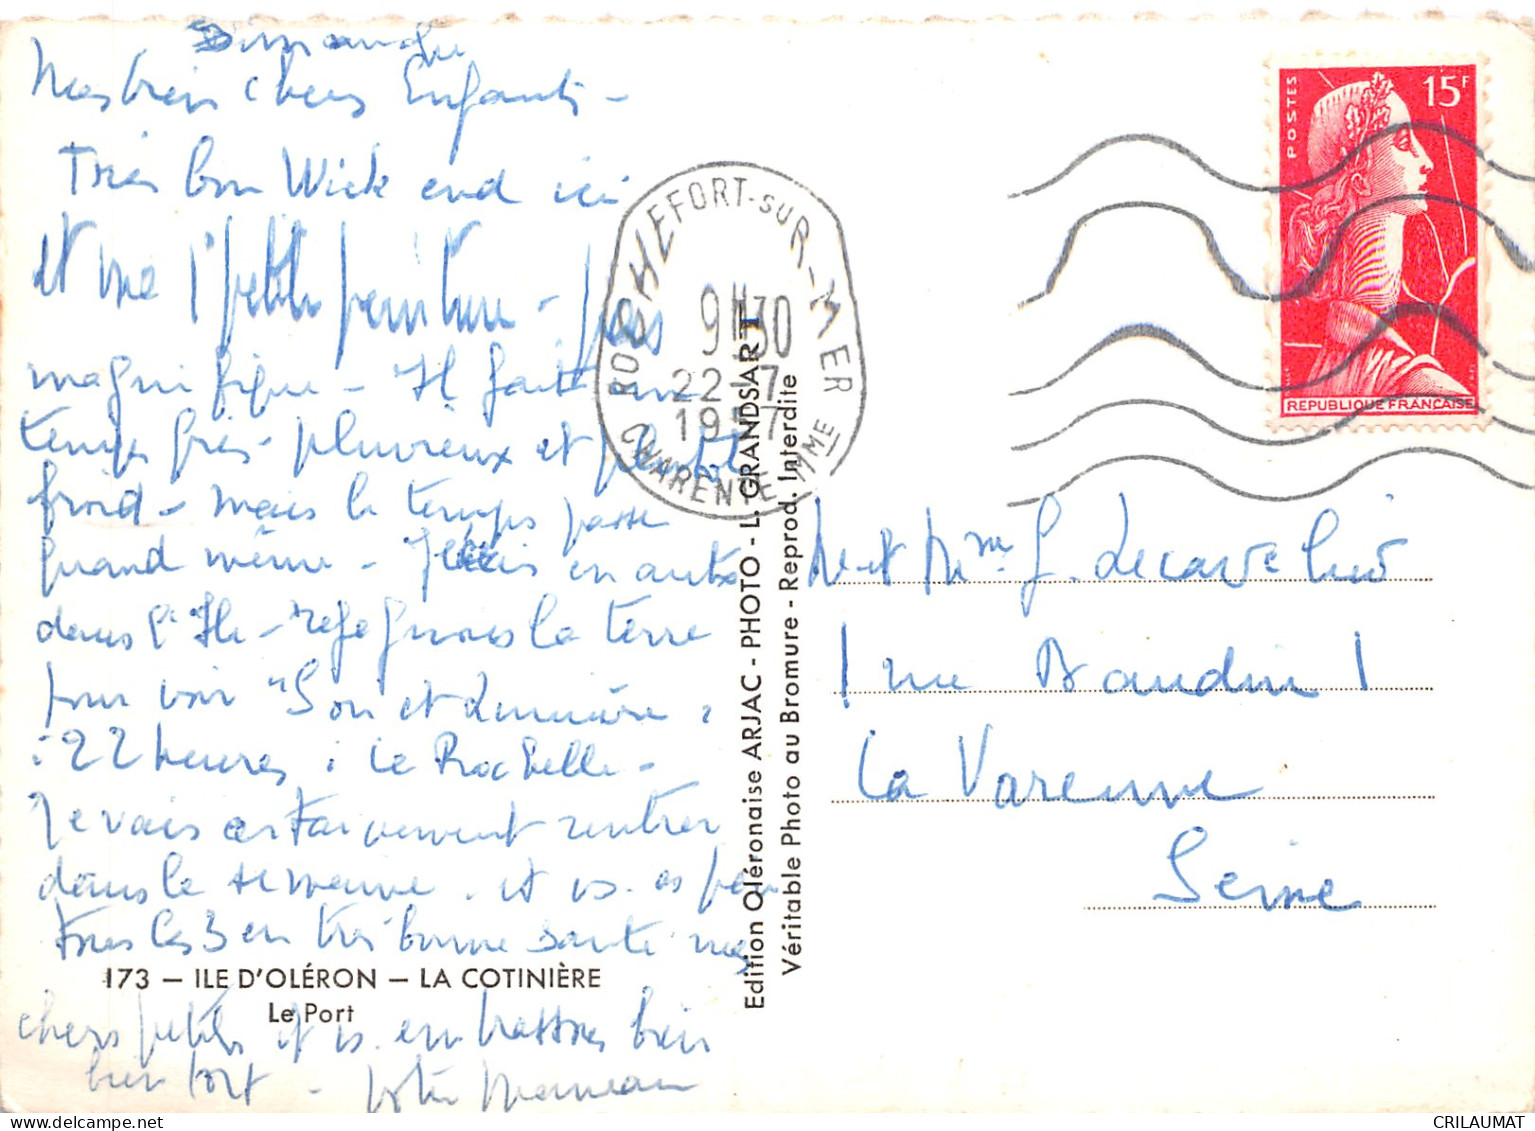 Dimanche
Mes bien chers Enfants -
Très bon Wick end ici
et une petite peinture - pas
magnifique - Il fait un
temps gris - pluvieux et plutôt
froid - mais le temps passe
quand même - en auto
dans l'Ile - la terre
pour voir "Son et Lumière
22 heures : La Rochelle -
Je vais certainement rentrer
dans la semaine . et vs. 
tous les 3 en très bonne santé mes
173 – ILE D'OLÉRON – LA COTINIÈRE
Le Port
chers petits et vs. embrasse bien
bien fort - Votre Maman
ROCHEFORT-SUR-MER
9H30
22-7
1957
CHARENTE MME
Edition Oléronaise ARJAC - PHOTO - L. GRANDSART
Véritable Photo au Bromure - Reprod. Interdite
POSTES
15F
REPUBLIQUE FRANÇAISE
M et Mme J. Lecavelié
1 rue Baudin 1
La Varenne
Seine
www.delcampe.net
CRILAUMAT